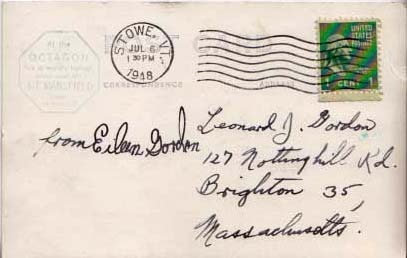 At the
OCTAGON
MT. MANSFIELD
STOWE, VT.
JUL 6
1 30 PM
1948
CARD
CORRESPONDENCE
ADDRESS
UNITED
STATES
POSTAGE
1 CENT 1
from Eileen Gordon
Leonard J. Gordon
127 Nottinghill Rd.
Brighton 35,
Massachusetts.